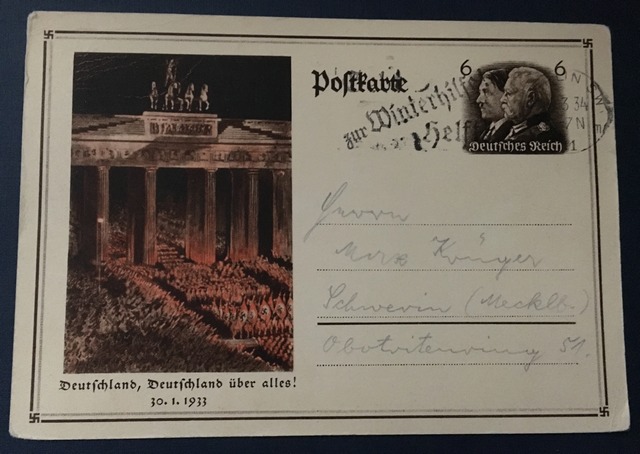 Postkarte
zur Winterhilfe
Helf
6 6
Deutsches Reich
3 34
7 N
1
Herrn
Krüger
Schwerin (Mecklb.)
Obotritenring 51.
Deutschland, Deutschland über alles!
30. 1. 1933